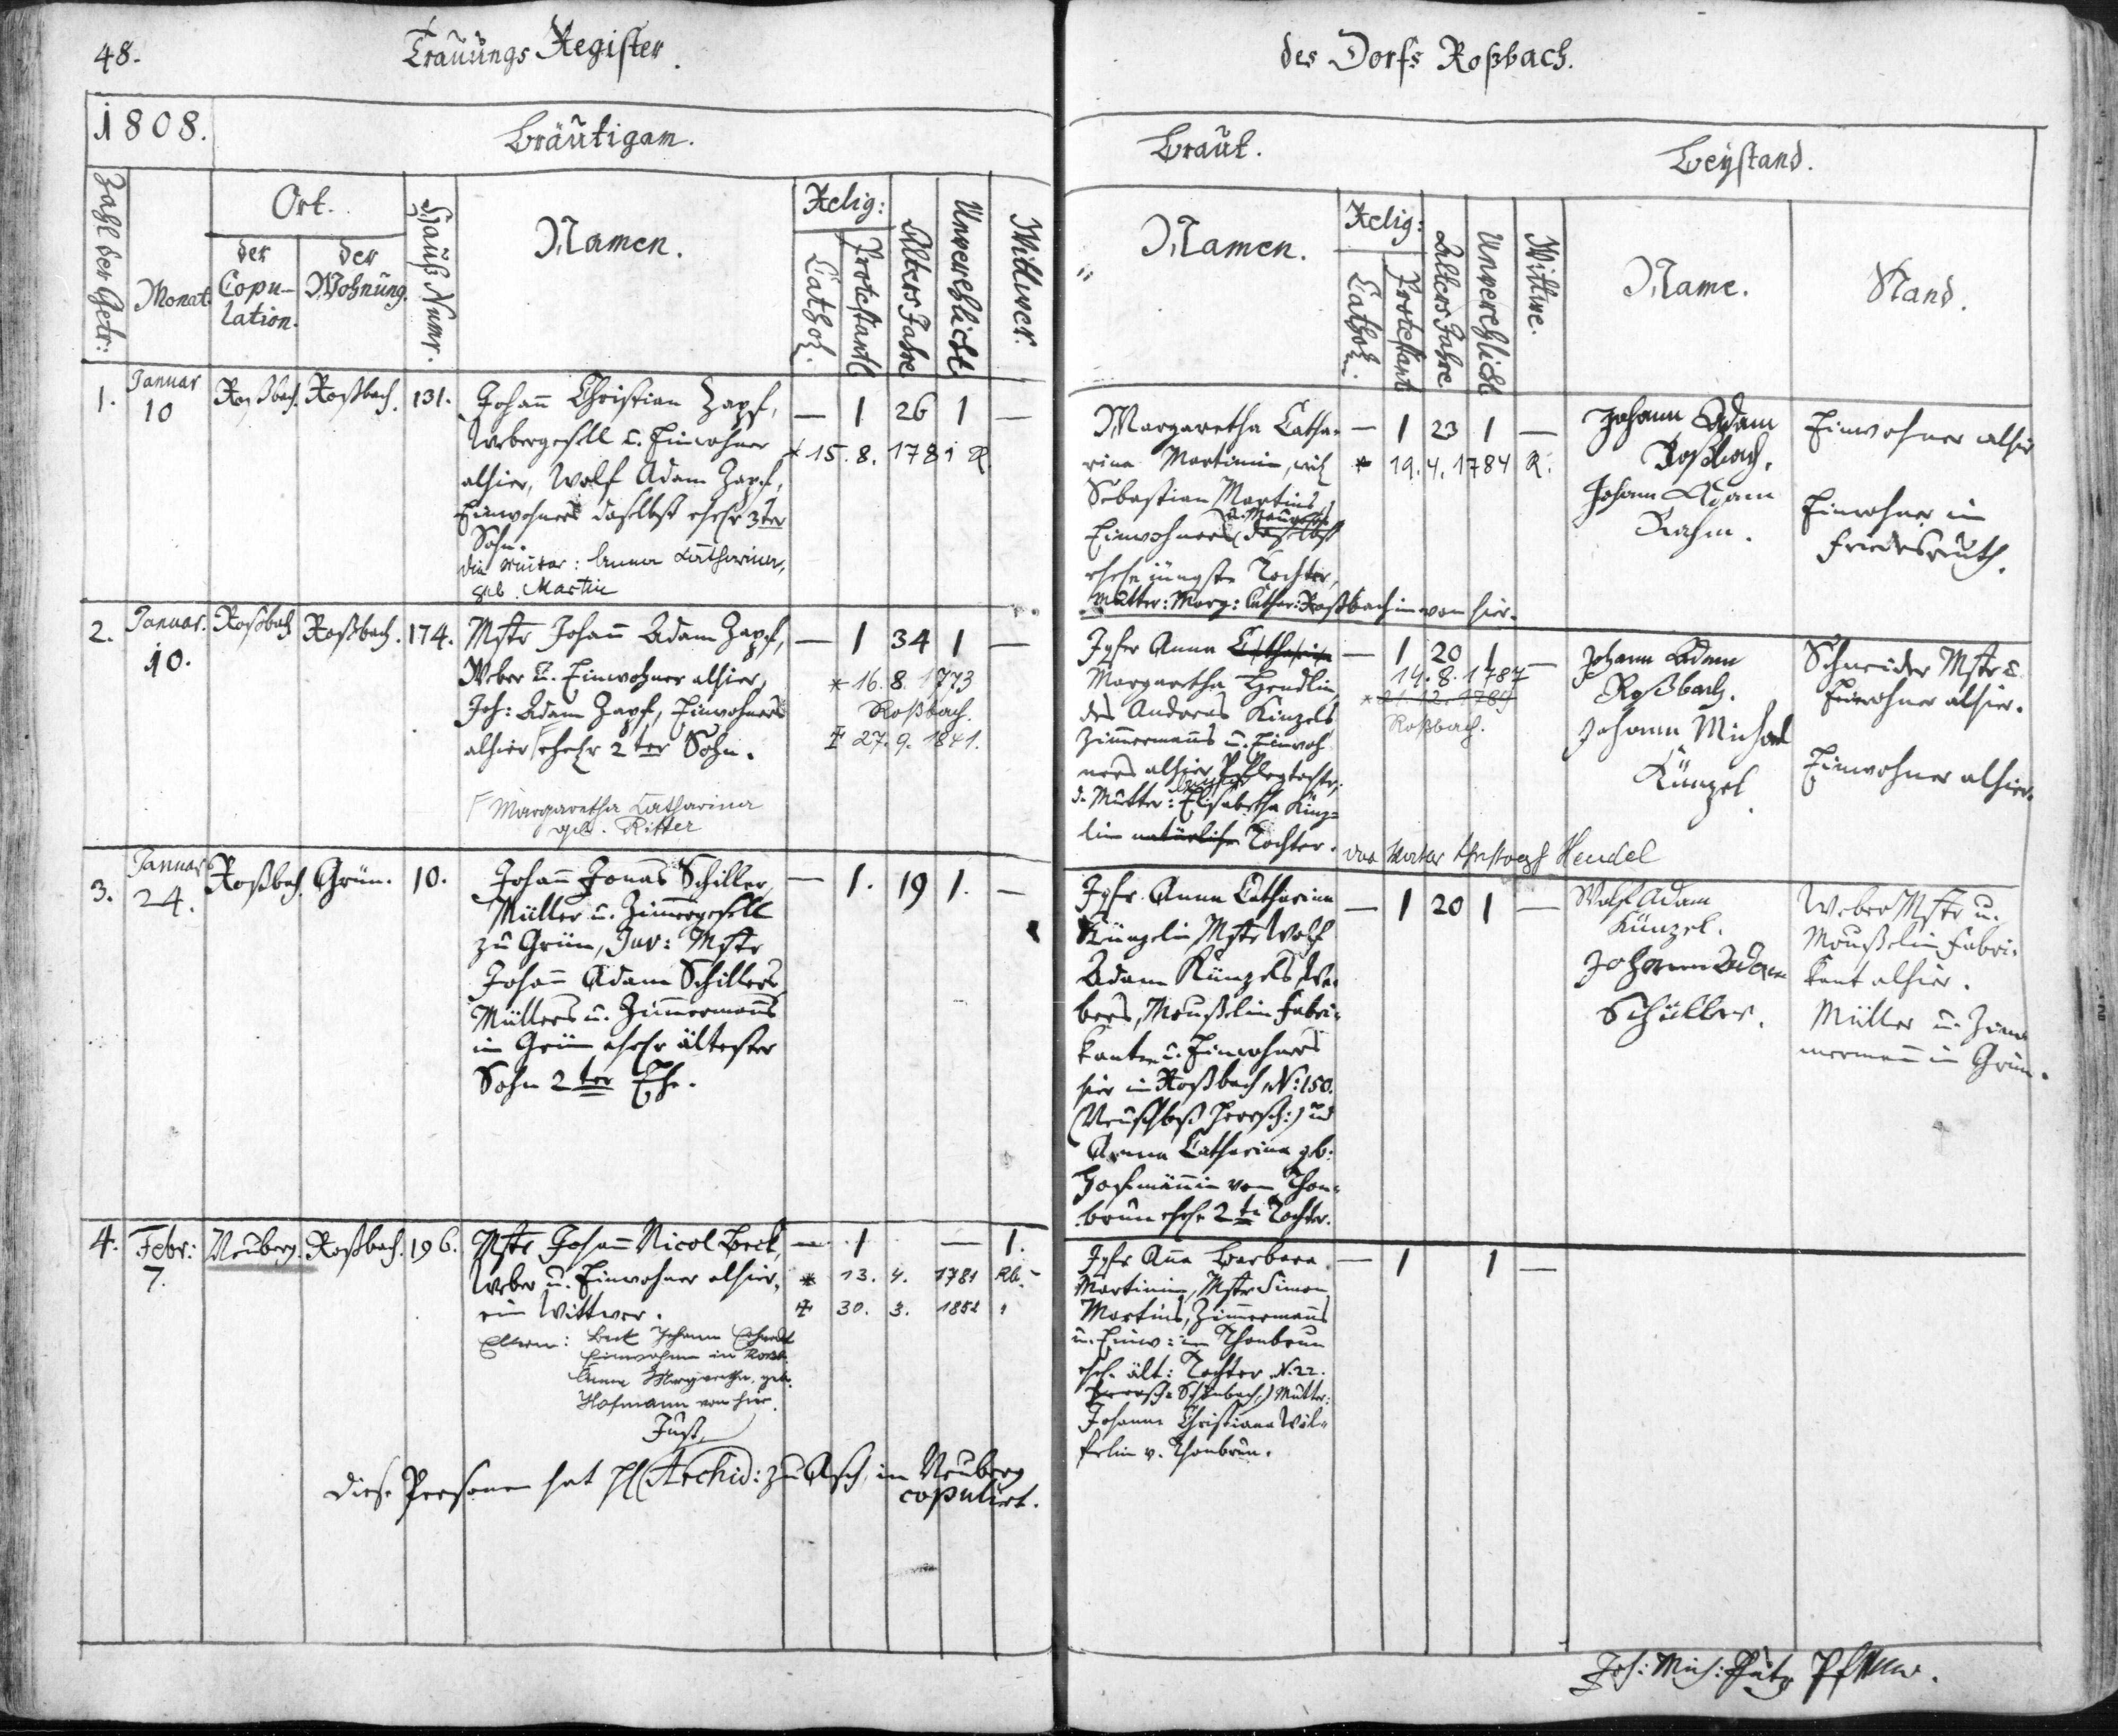 48.
Trauungs Register.
des Dorfs Roßbach.
1808.
Bräutigam.
Braut.
Beystand.
Zahl der Getr:
Monat.
Ort.
der Copu-
lation.
der
Wohnung.
Hauß Numr.
Namen.
Relig:
Cathol.
Protestantl
Alters Jahre
Unverehlicht
Wittwer.
Namen.
Relig:
Cathol.
Protestant
Alters Jahre
Unverehlicht
Wittwe.
Name.
Stand.
1.
Januar
10
Roßbach.
Roßbach.
131.
Johann Christian Zapf,
Webergesell u. Einwohner
alhier, Wolf Adam Zapf,
Einwohners daselbst ehel. 3ter
Sohn.
die Mutter: Anna Catharina,
geb. Martin
— 1 26 1 —
* 15. 8. 1781 R.
Margaretha Catha-
rina Martinin,
Sebastian Martins
Einwohners daselbst
ehel. jüngste Tochter,
Mutter: Marg: Cathar: Roßbachin von hier.
— 1 23 1 —
* 19. 4. 1784 R.
Johann Adam
Roßbach.
Johann Adam
Rahm.
Einwohner alhier
Einwohner in
Friedersreuth.
2.
Januar.
10.
Roßbach
Roßbach.
174.
Mstr Johann Adam Zapf,
Weber u. Einwohner alhier,
Joh: Adam Zapf, Einwohners
alhier ehel. 2ter Sohn.
Margaretha Catharina
geb. Ritter
— 1 34 1 —
* 16. 8. 1773
Roßbach.
‡ 27. 9. 1841.
Jgfr Anna Catharina
Margaretha Hendlin
des Andreas Künzels
Zimmermanns u. Einwoh-
ners alhier Pflegtochter,
d. Mutter: Elisabetha Künz-
lin natürliche Tochter.
der Vater Christoph Hendel
— 1 20 1 —
14. 8. 1787
* 21. 12. 1789
Roßbach.
Johann Adam
Roßbach.
Johann Michael
Künzel.
Schneider Mstr u.
Einwohner alhier.
Einwohner alhier.
3.
Januar
24.
Roßbach.
Grün.
10.
Johann Jonas Schiller,
Müller u. Zimmergesell
zu Grün, Juv: Mstr
Johann Adam Schillers
Müllers u. Zimmermanns
in Grün ehel. ältester
Sohn 2ter Ehe.
— 1. 19 1. —
Jgfr. Anna Catharina
Künzelin Mstr Wolf
Adam Künzels We-
bers, Moußelin Fabri-
kanten u. Einwohners
hier in Roßbach N: 150.
und
Anna Catharina geb:
Hofmännin von Thon-
brun ehel. 2te Tochter.
— 1 20 1 —
Wolf Adam
Künzel.
Johann Adam
Schiller.
Weber Mstr u.
Moußelin Fabri-
kant alhier.
Müller u. Zim-
mermann in Grün.
4.
Febr:
7.
Neuberg.
Roßbach.
196.
Mstr Johann Nicol Beck,
Weber u. Einwohner alhier,
ein Wittwer.
Eltern: Beck Johann Erhardt
Einwohner in Roßb.
Anna Margaretha, geb.
Hofmann von hier.
Just,
— 1 — 1.
* 13. 4. 1781 Rb.
‡ 30. 3. 1852 "
Jgfr Anna Barbara
Martinin, Mstr Simon
Martins, Zimmermanns
u. Einw: in Thonbrun
ehel. ält: Tochter N. 22.
Schönbach, Mutter:
Johanna Christiana Wöl-
felin v. Thonbrun.
— 1 1 —
Diese Personen hat H. Archid: zu Asch, in Neuberg
copulirt.
Joh: Mich: